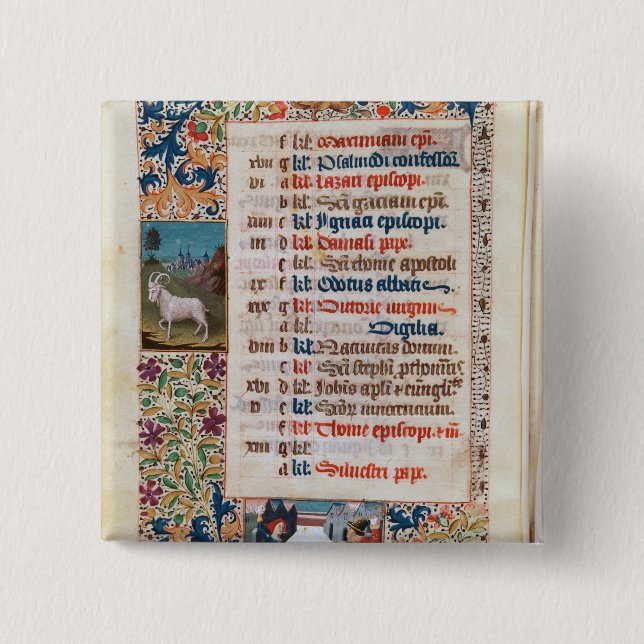 f kl: Maximiani epi.
xviii g kl: Psalmodi confessor
vi a kl: Lazari episcopi.
b kl: Sci graciani epi.
xiiii c kl: Ignaci episcopi.
iii d kl: Damasi pape.
e kl: Sci thome apostoli
xi f kl: Odotus abbatis
xix g kl: Victorie virginis
a Vigilia.
viii b kl: Nativitas domini.
c kl: Sci stephani prothomris
xvi d kl: Johis apli & euuangliste
v e kl: Scorum innocencium.
f kl: Thome episcopi & m
xiii g kl:
a kl: Silvestri pape.